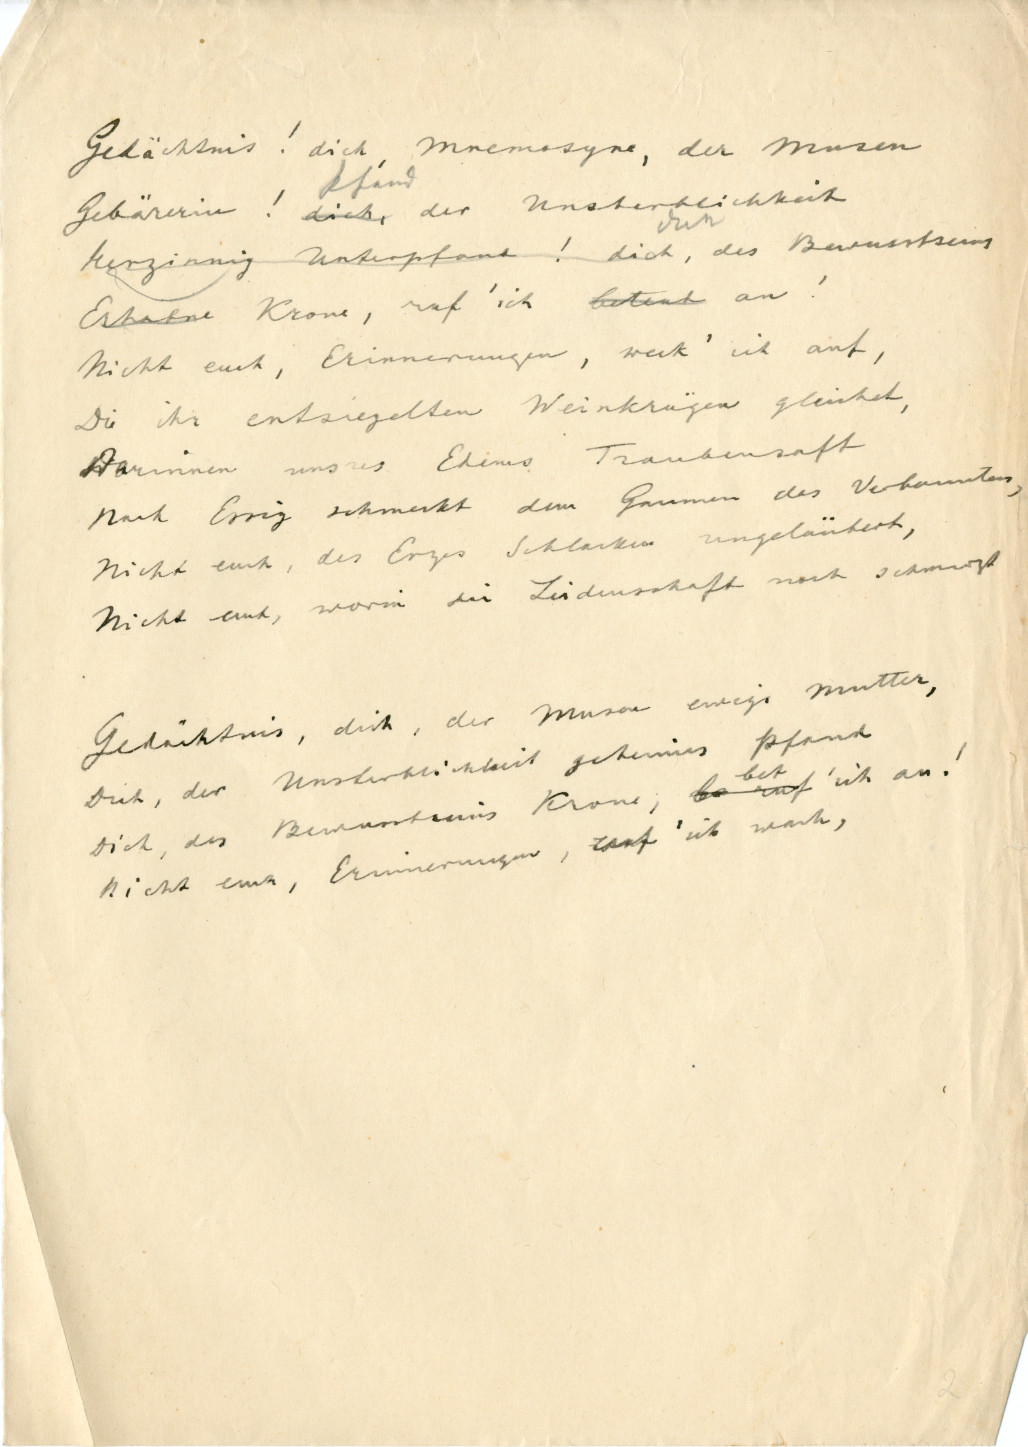 Gedächtnis! dich, Mnemosyne, der Musen
Pfand
Gebärerin! dich, der Unsterblichkeit
dich
Herzinnig Unterpfand! dich, des Bewusstseins
Erhabne Krone, ruf' ich betend an!
Nicht euch, Erinnerungen, weck' ich auf,
Die ihr entsiegelten Weinkrügen gleichet,
Darinnen unsres Edens Traubensaft
Nach Essig schmeckt dem Gaumen des Verbannten,
Nicht euch, des Erzes Schlacken ungeläutert,
Nicht euch, worin die Leidenschaft noch schmerzt
Gedächtnis, dich, der Musen ewige Mutter,
Dich, der Unsterblichkeit geheimes Pfand
bet
Dich, des Bewusstseins Krone, ruf' ich an!
Nicht euch, Erinnerungen, ruf' ich wach,
2